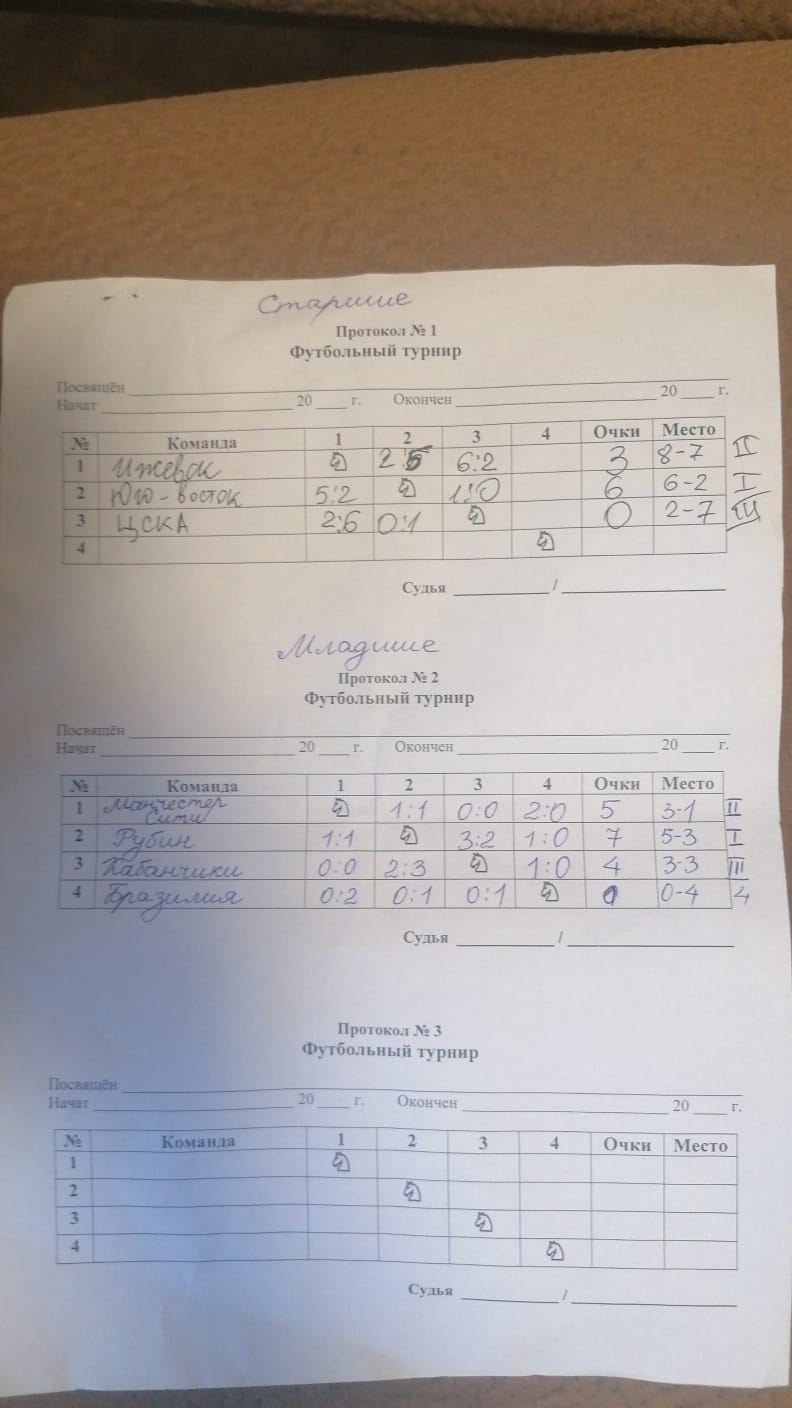 Старшие
Протокол № 1
Футбольный турнир
Посвящён
Начат 20 г. Окончен 20 г.
№ Команда 1 2 3 4 Очки Место
1 Ижевск 2:5 6:2 3 8-7 II
2 Юго-восток 5:2 1:0 6 6-2 I
3 ЦСКА 2:6 0:1 0 2-7 III
4
Судья /
Младшие
Протокол № 2
Футбольный турнир
Посвящён
Начат 20 г. Окончен 20 г.
№ Команда 1 2 3 4 Очки Место
1 Манчестер Сити 1:1 0:0 2:0 5 3-1 II
2 Рубин 1:1 3:2 1:0 7 5-3 I
3 Кабанчики 0:0 2:3 1:0 4 3-3 III
4 Бразилия 0:2 0:1 0:1 0 0-4 4
Судья /
Протокол № 3
Футбольный турнир
Посвящён
Начат 20 г. Окончен 20 г.
№ Команда 1 2 3 4 Очки Место
1
2
3
4
Судья /